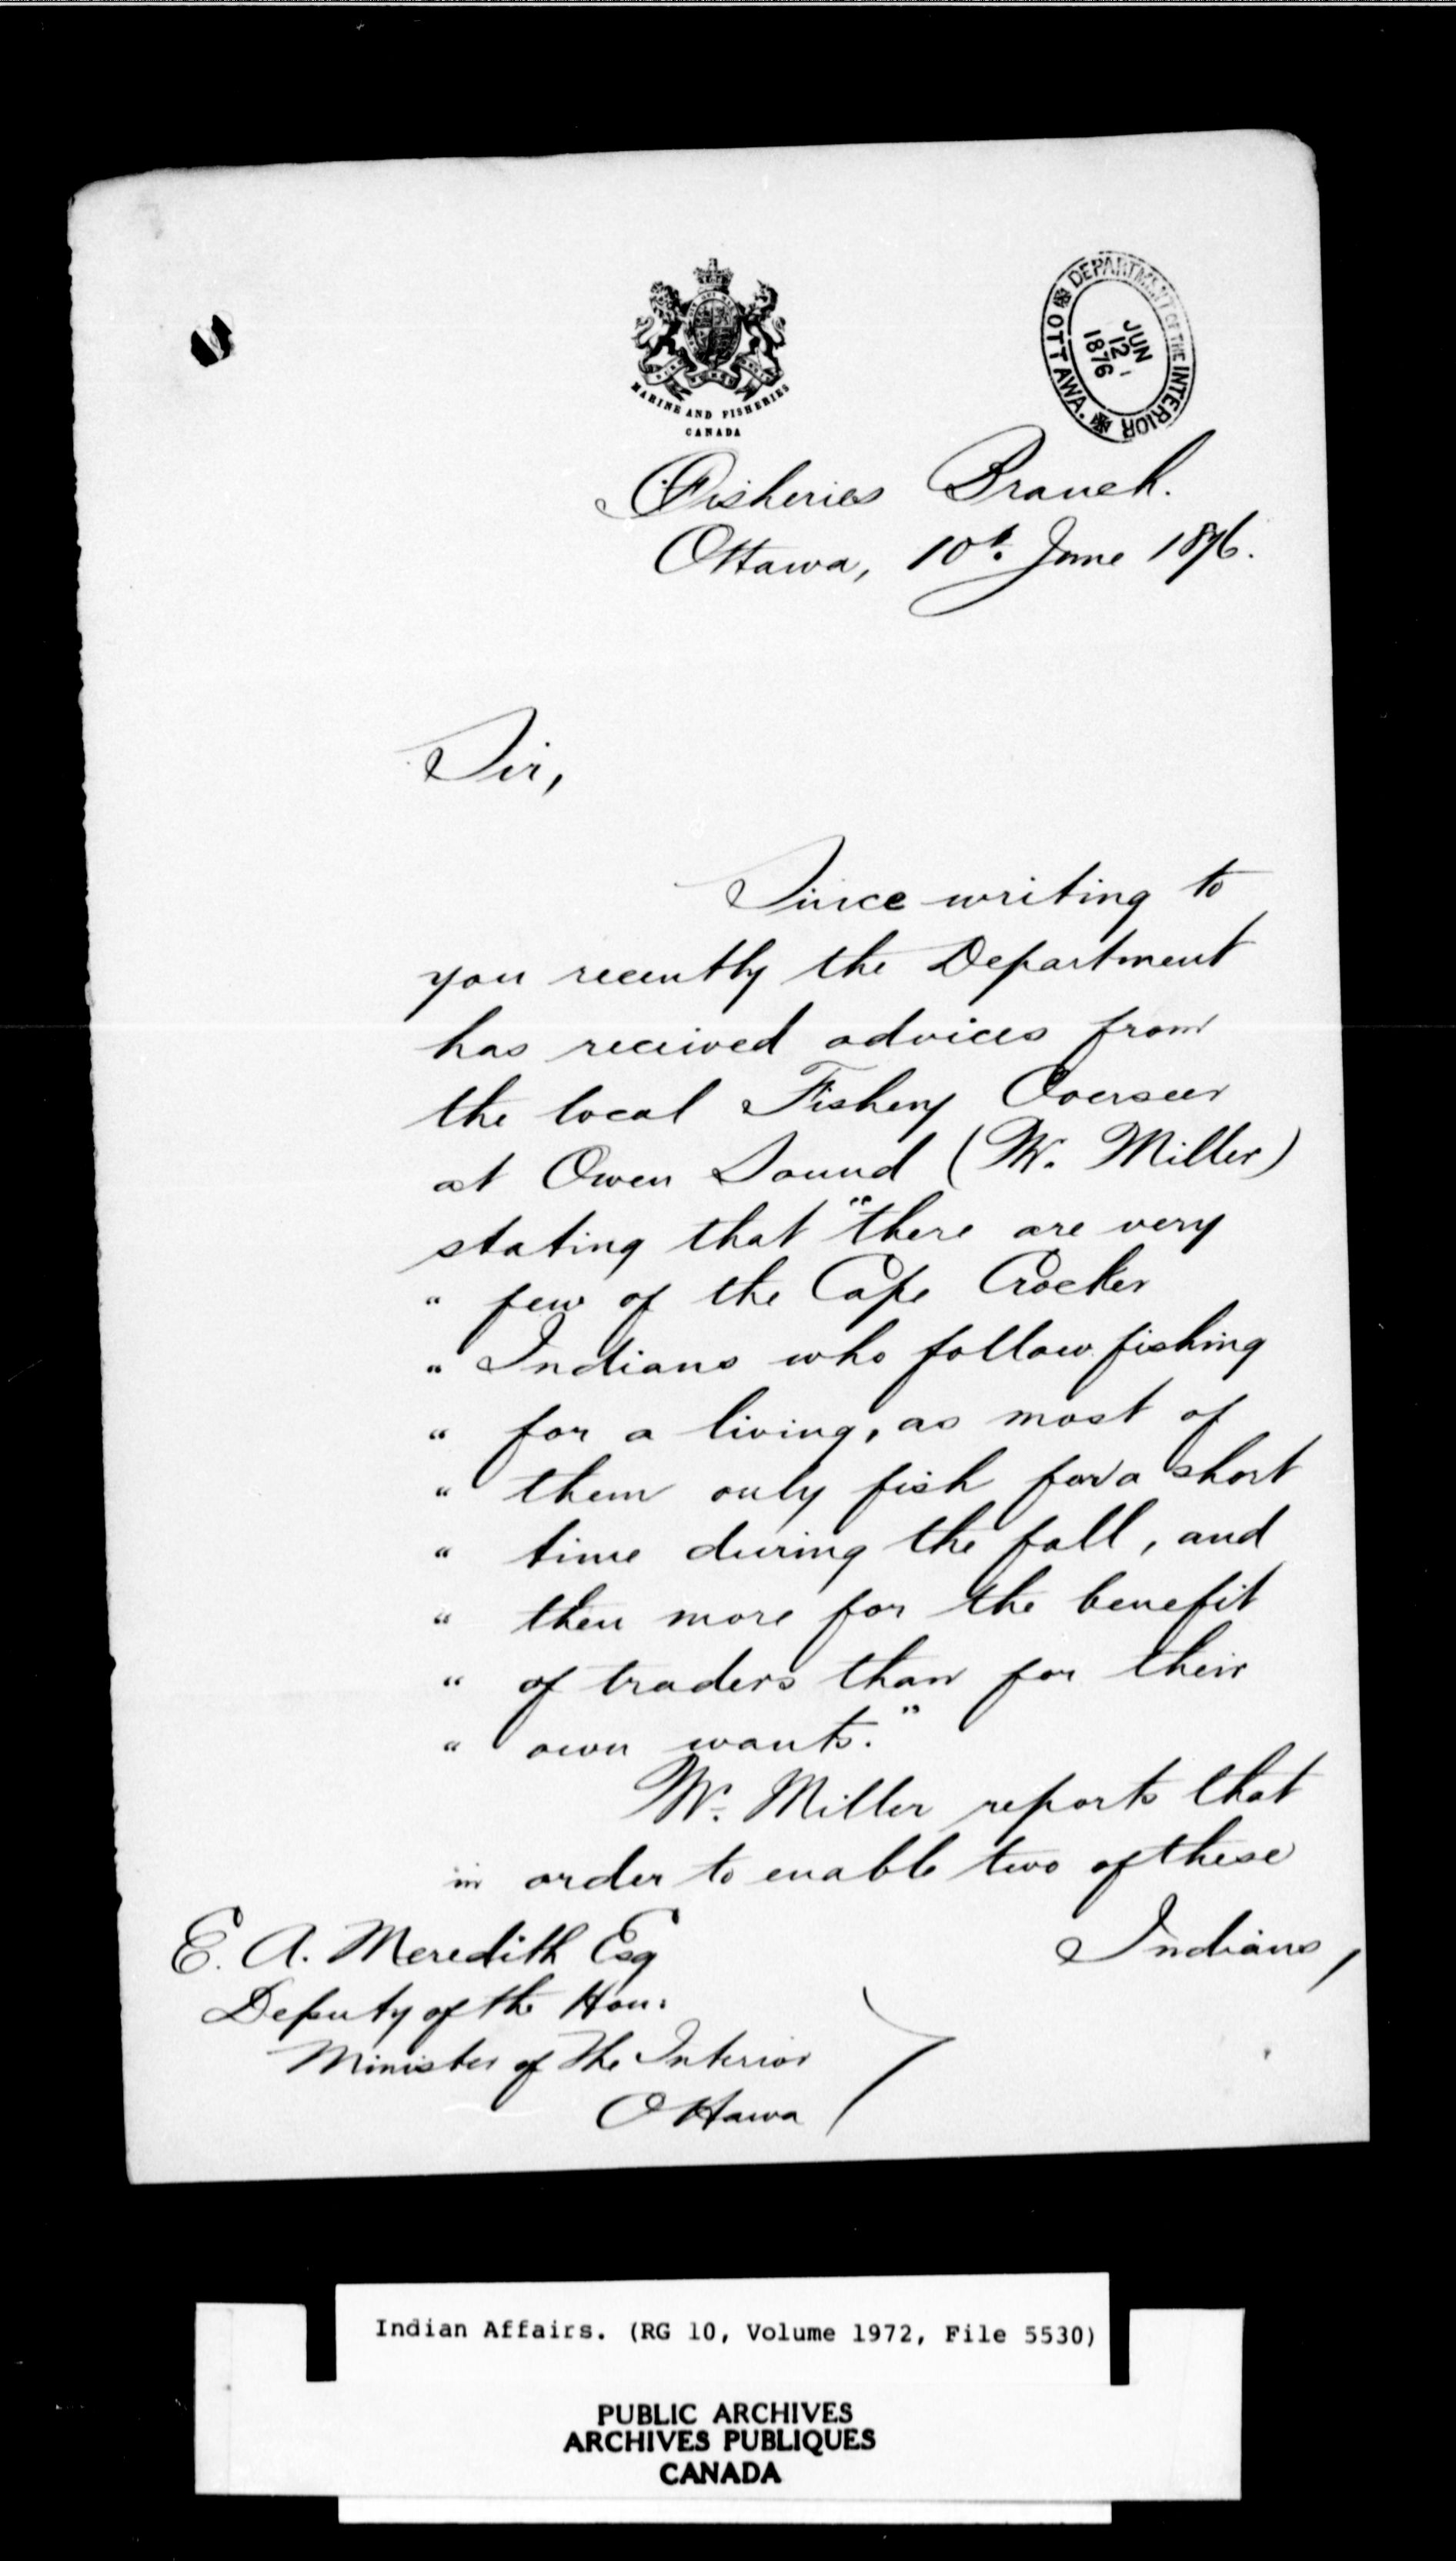 MARINE AND FISHERIES
CANADA
DEPARTMENT OF THE INTERIOR
JUN
12
1876
OTTAWA.
Fisheries Branch.
Ottawa, 10th. June 1876.
Sir,
Since writing to
you recently the Department
has received advices from
the local Fishery Overseer
at Owen Sound (W. Miller)
stating that "there are very
" few of the Cape Crocker
" Indians who follow fishing
" for a living, as most of
" them only fish for a short
" time during the fall, and
" then more for the benefit
" of traders than for their
" own wants."
W. Miller reports that
in order to enable two of these
Indians,
E. A. Meredith Esq
Deputy of the Hon.
Minister of the Interior
Ottawa
Indian Affairs. (RG 10, Volume 1972, File 5530)
PUBLIC ARCHIVES
ARCHIVES PUBLIQUES
CANADA